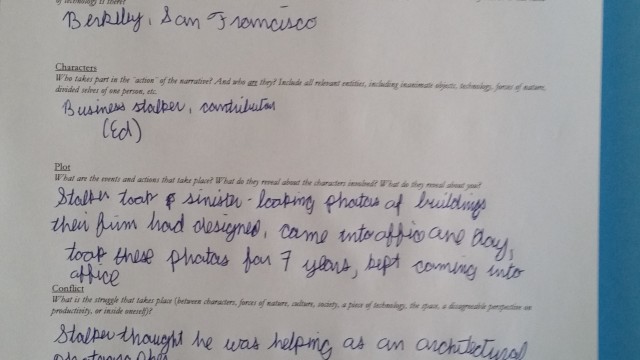 of technology is there?
Berkeley, San Francisco
Characters
Who takes part in the "action" of the narrative? And who are they? Include all relevant entities, including inanimate objects, technology, forces of nature,
divided selves of one person, etc.
Business stalker, contributor
(Ed)
Plot
What are the events and actions that take place? What do they reveal about the characters involved? What do they reveal about you?
Stalker took sinister-looking photos of buildings
their firm had designed, came into office one day,
took these photos for 7 years, kept coming into
office
Conflict
What is the struggle that takes place (between characters, forces of nature, culture, society, a piece of technology, the space, a disagreeable perspective on
productivity, or inside oneself)?
Stalker thought he was helping as an architectural
photographer